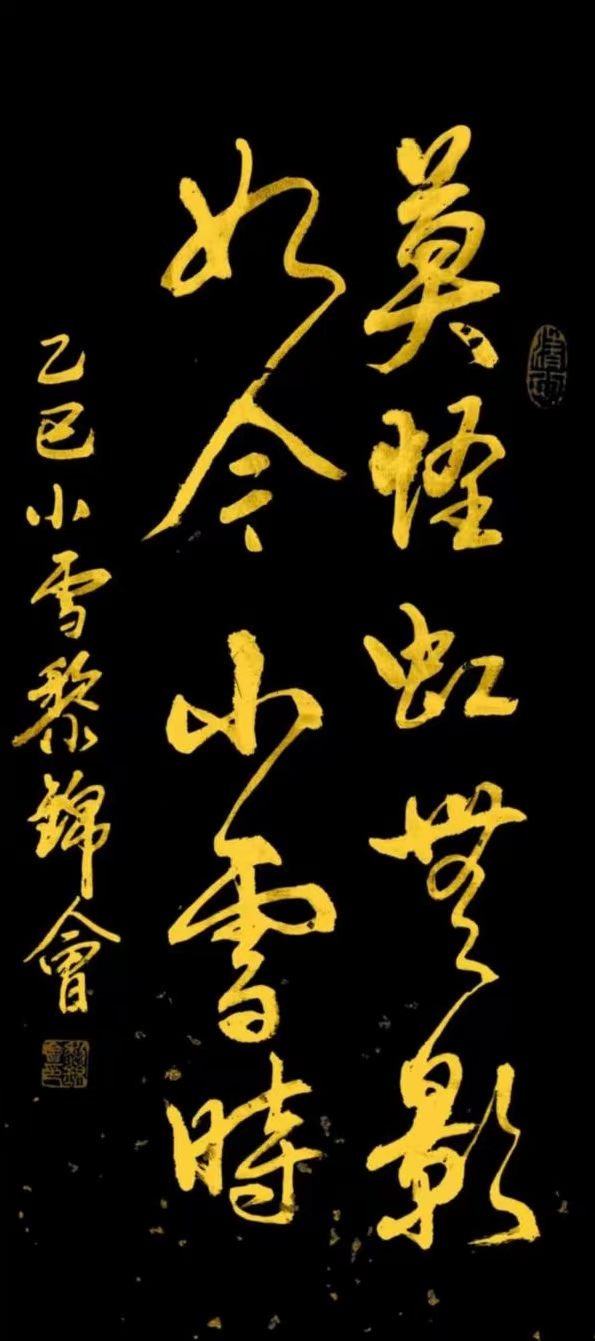 莫怪虹無影
如今小雪時
乙巳小雪黎錦會